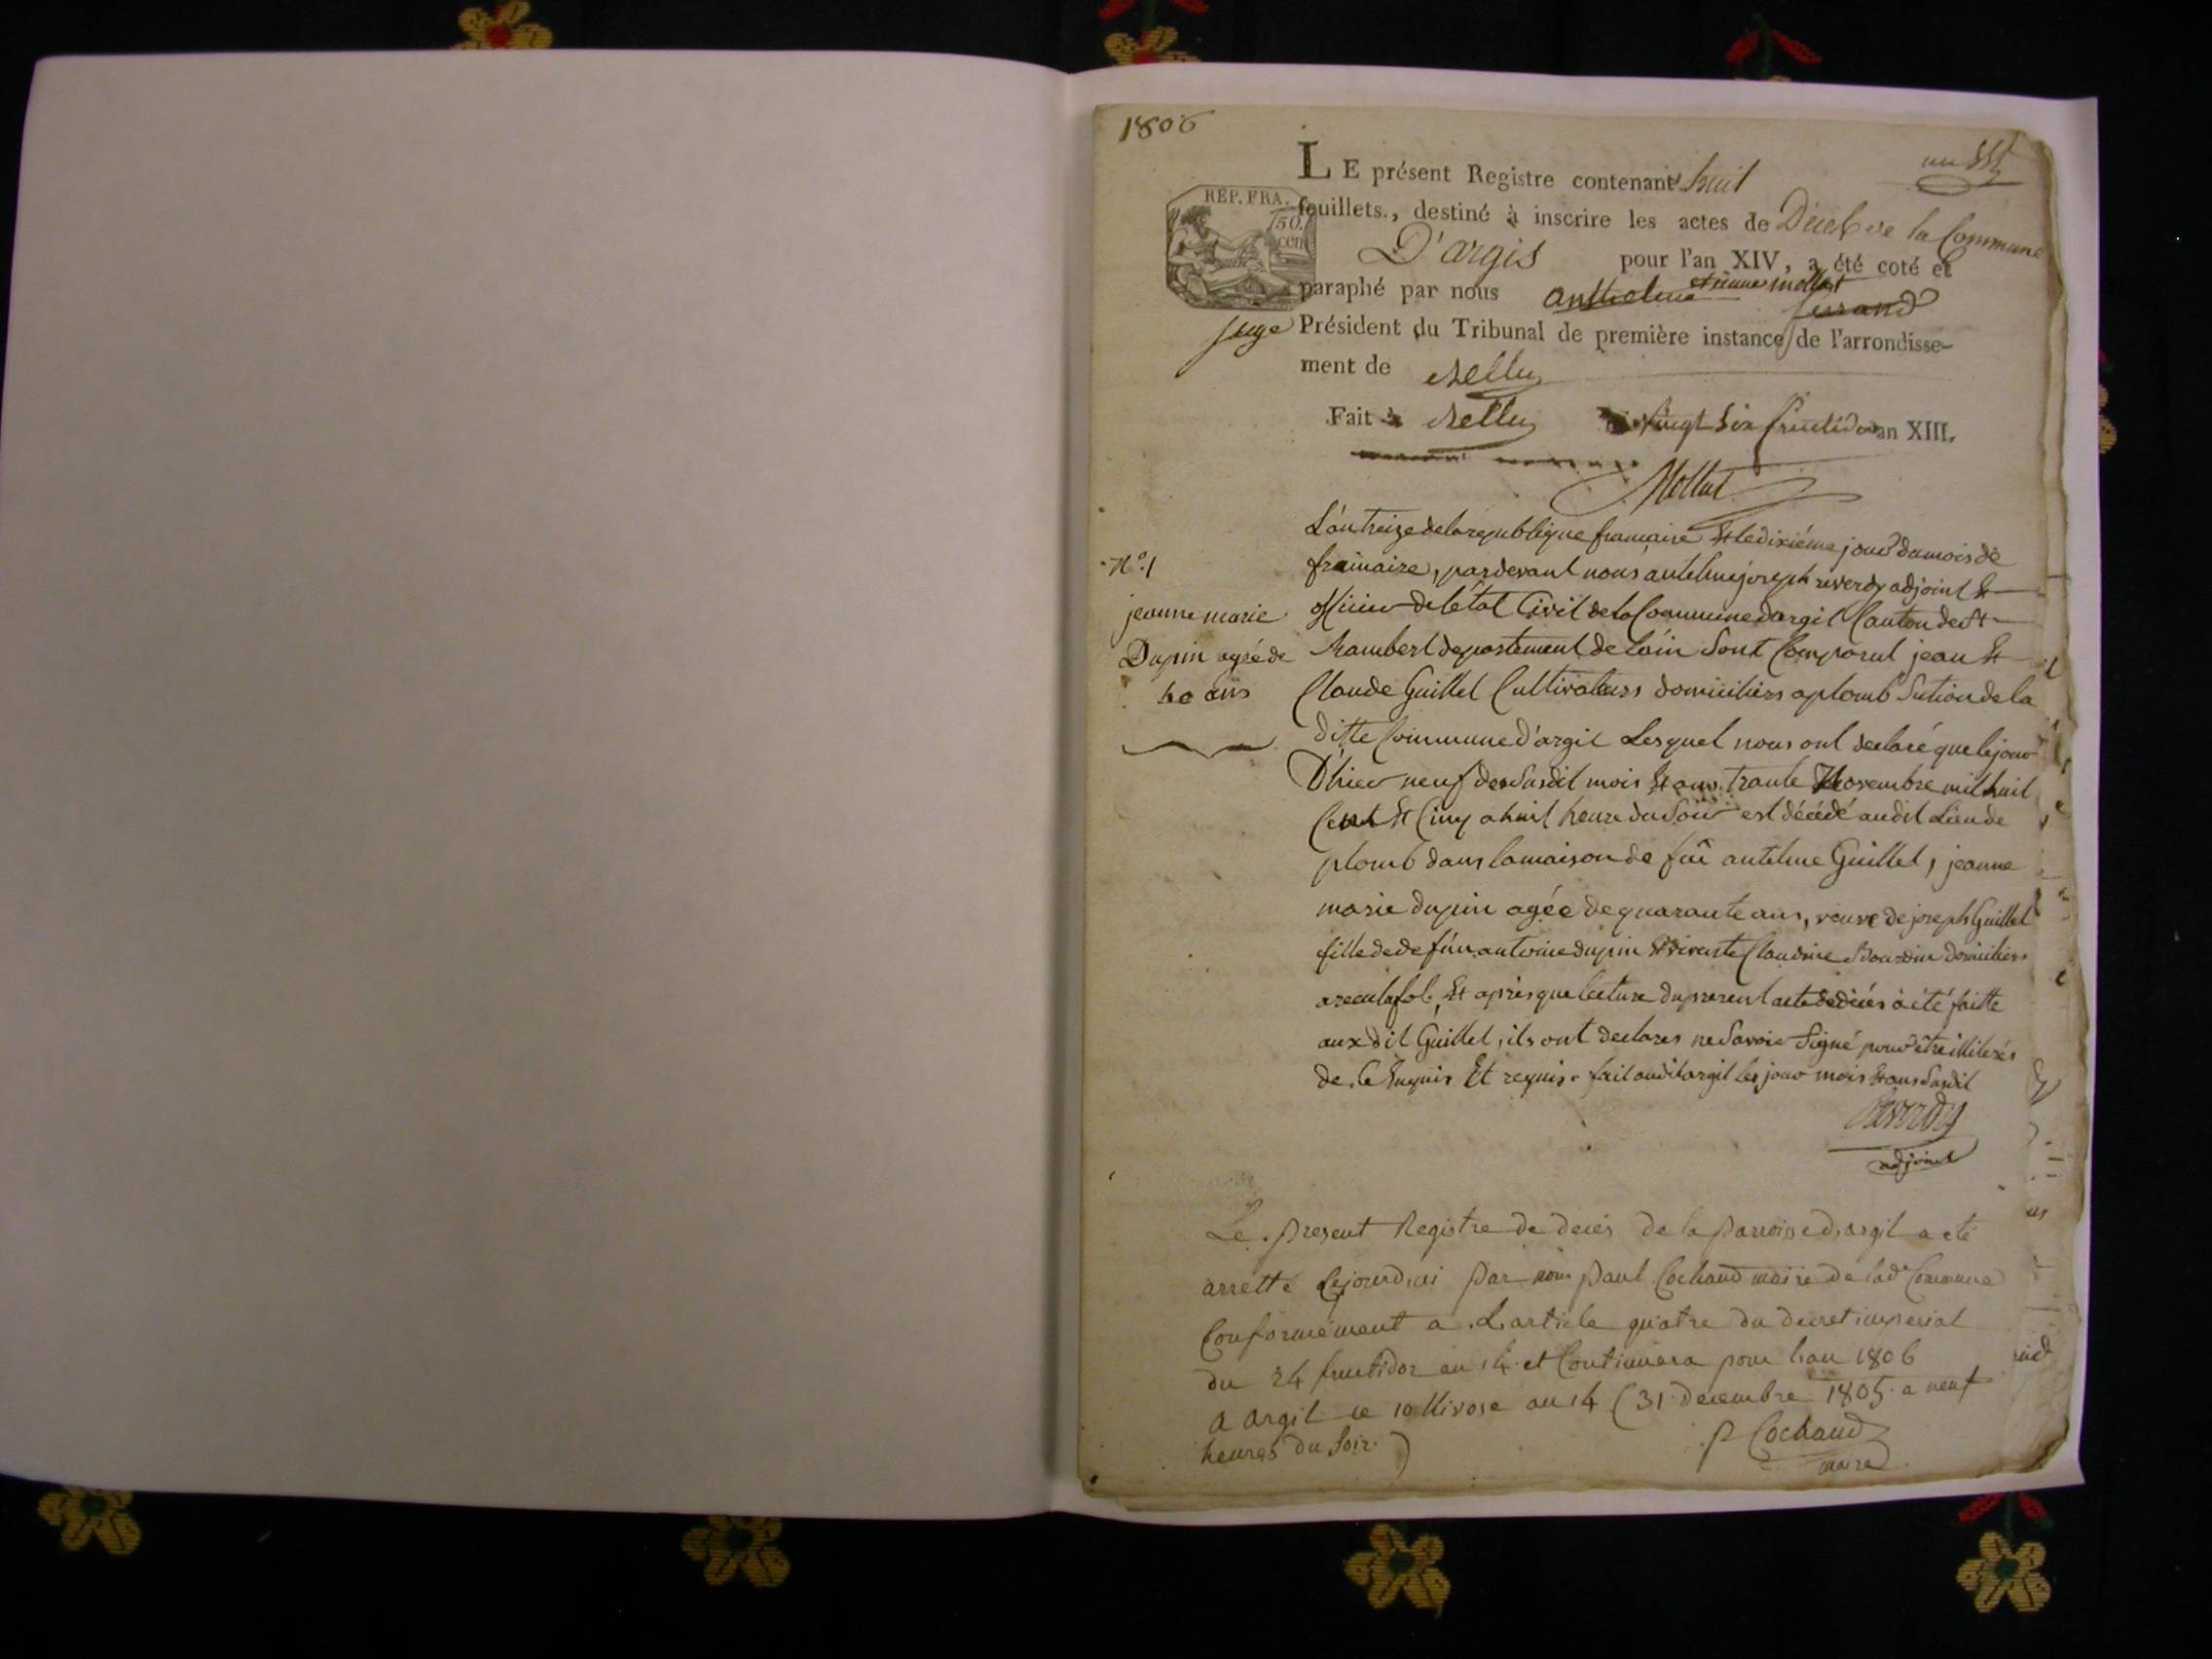 1806
un
LE présent Registre contenant huit
REP. FRA.
50.
cen
feuillets., destiné à inscrire les actes de Décès de la Commune
D'argis pour l'an XIV, a été coté et
paraphé par nous anthelme ferrand etienne mollet
juge Président du Tribunal de première instance de l'arrondisse-
ment de Belley
Fait à Belley vingt six fructidor an XIII.
Mollet
L'an treize de la republique française & le dixiéme jour du mois de
N°. 1
frimaire, pardevant nous antelme joseph reverdy adjoint &
jeanne marie
officier de l'état Civil de la Commune d'argil Canton de St
Dupin agée de
Rambert departement de l'áin Sont Comparut jean &
40 ans
Claude Guillet Cultivateurs domiciliers a plomb Section de la
ditte Commune d'argil Lesquel nous ont declaré que le jour
D'hier neuf du Susdit mois & ans trante Novembre mil huit
Cent & Cinq a huit heure du Soir est décédé audit Lieu de
plomb dans la maison de fûe antelme Guillet, jeanne
marie dupin agée de quarante ans, veuve de joseph Guillet
fille de defûn antoine dupin & vivante Claudine Bourdin domiciliers
, Et apres que lecture du present acte de décés à été faitte
aux dit Guillet, ils ont declares ne Savoir Signé pour être illiterés
de. Ce Enquis Et requis. fait audit argil les jour mois & ans Susdit
Reverdy
adjoint
Le present Registre de deces de la parroisse d'argil a été
arretté Cejourdhui par nous paul Cochand maire de lad Commune
Conformément a L'article quatre du decret imperial
du 24 fructidor an 14 et Continuera pour l'an 1806
a argil ce 10 Nivose an 14 (31 decembre 1805 a neuf
heures du Soir)
P Cochand
maire